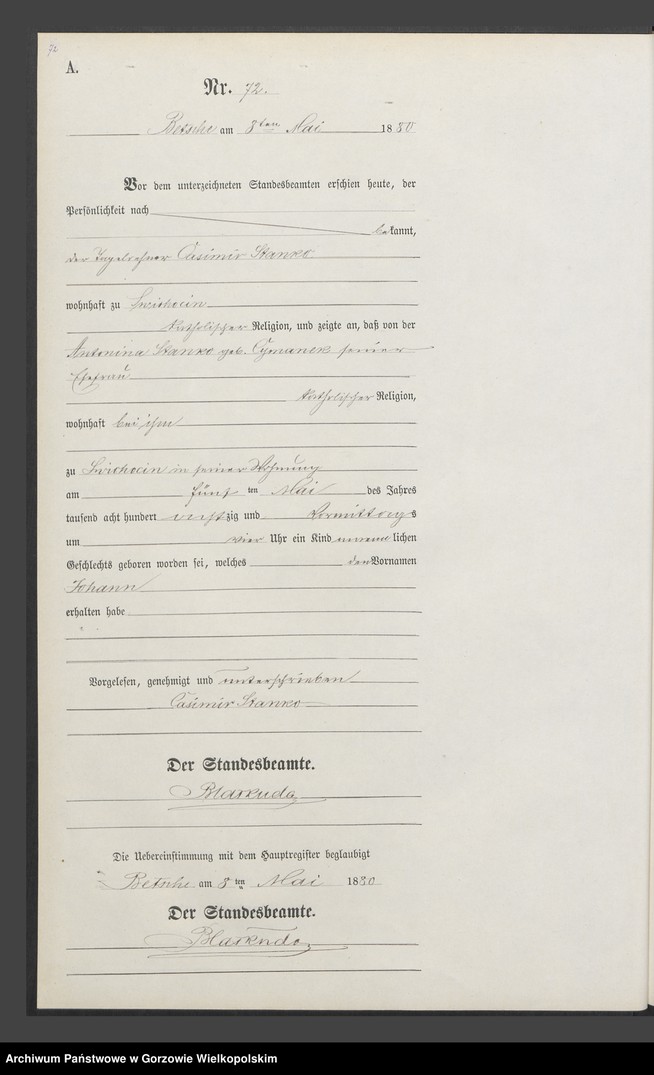 72
A.
Nr. 72.
Betsche am 8ten Mai 1880
Vor dem unterzeichneten Standesbeamten erschien heute, der
Persönlichkeit nach
bekannt,
der Tagelöhner Casimir Stanko
wohnhaft zu Swichocin
katholischer Religion, und zeigte an, daß von der
Antonina Stanko geb. Cymanek seiner
Ehefrau
katholischer Religion,
wohnhaft bei ihm
zu Swichocin in seiner Wohnung
am fünf ten Mai des Jahres
tausend acht hundert achtzig und Vormittags
um vier Uhr ein Kind männlichen
Geschlechts geboren worden sei, welches den Vornamen
Johann
erhalten habe
Vorgelesen, genehmigt und unterschrieben
Casimir Stanko
Der Standesbeamte.
Die Uebereinstimmung mit dem Hauptregister beglaubigt
Betsche am 8 ten Mai 1880
Der Standesbeamte.
Archiwum Państwowe w Gorzowie Wielkopolskim